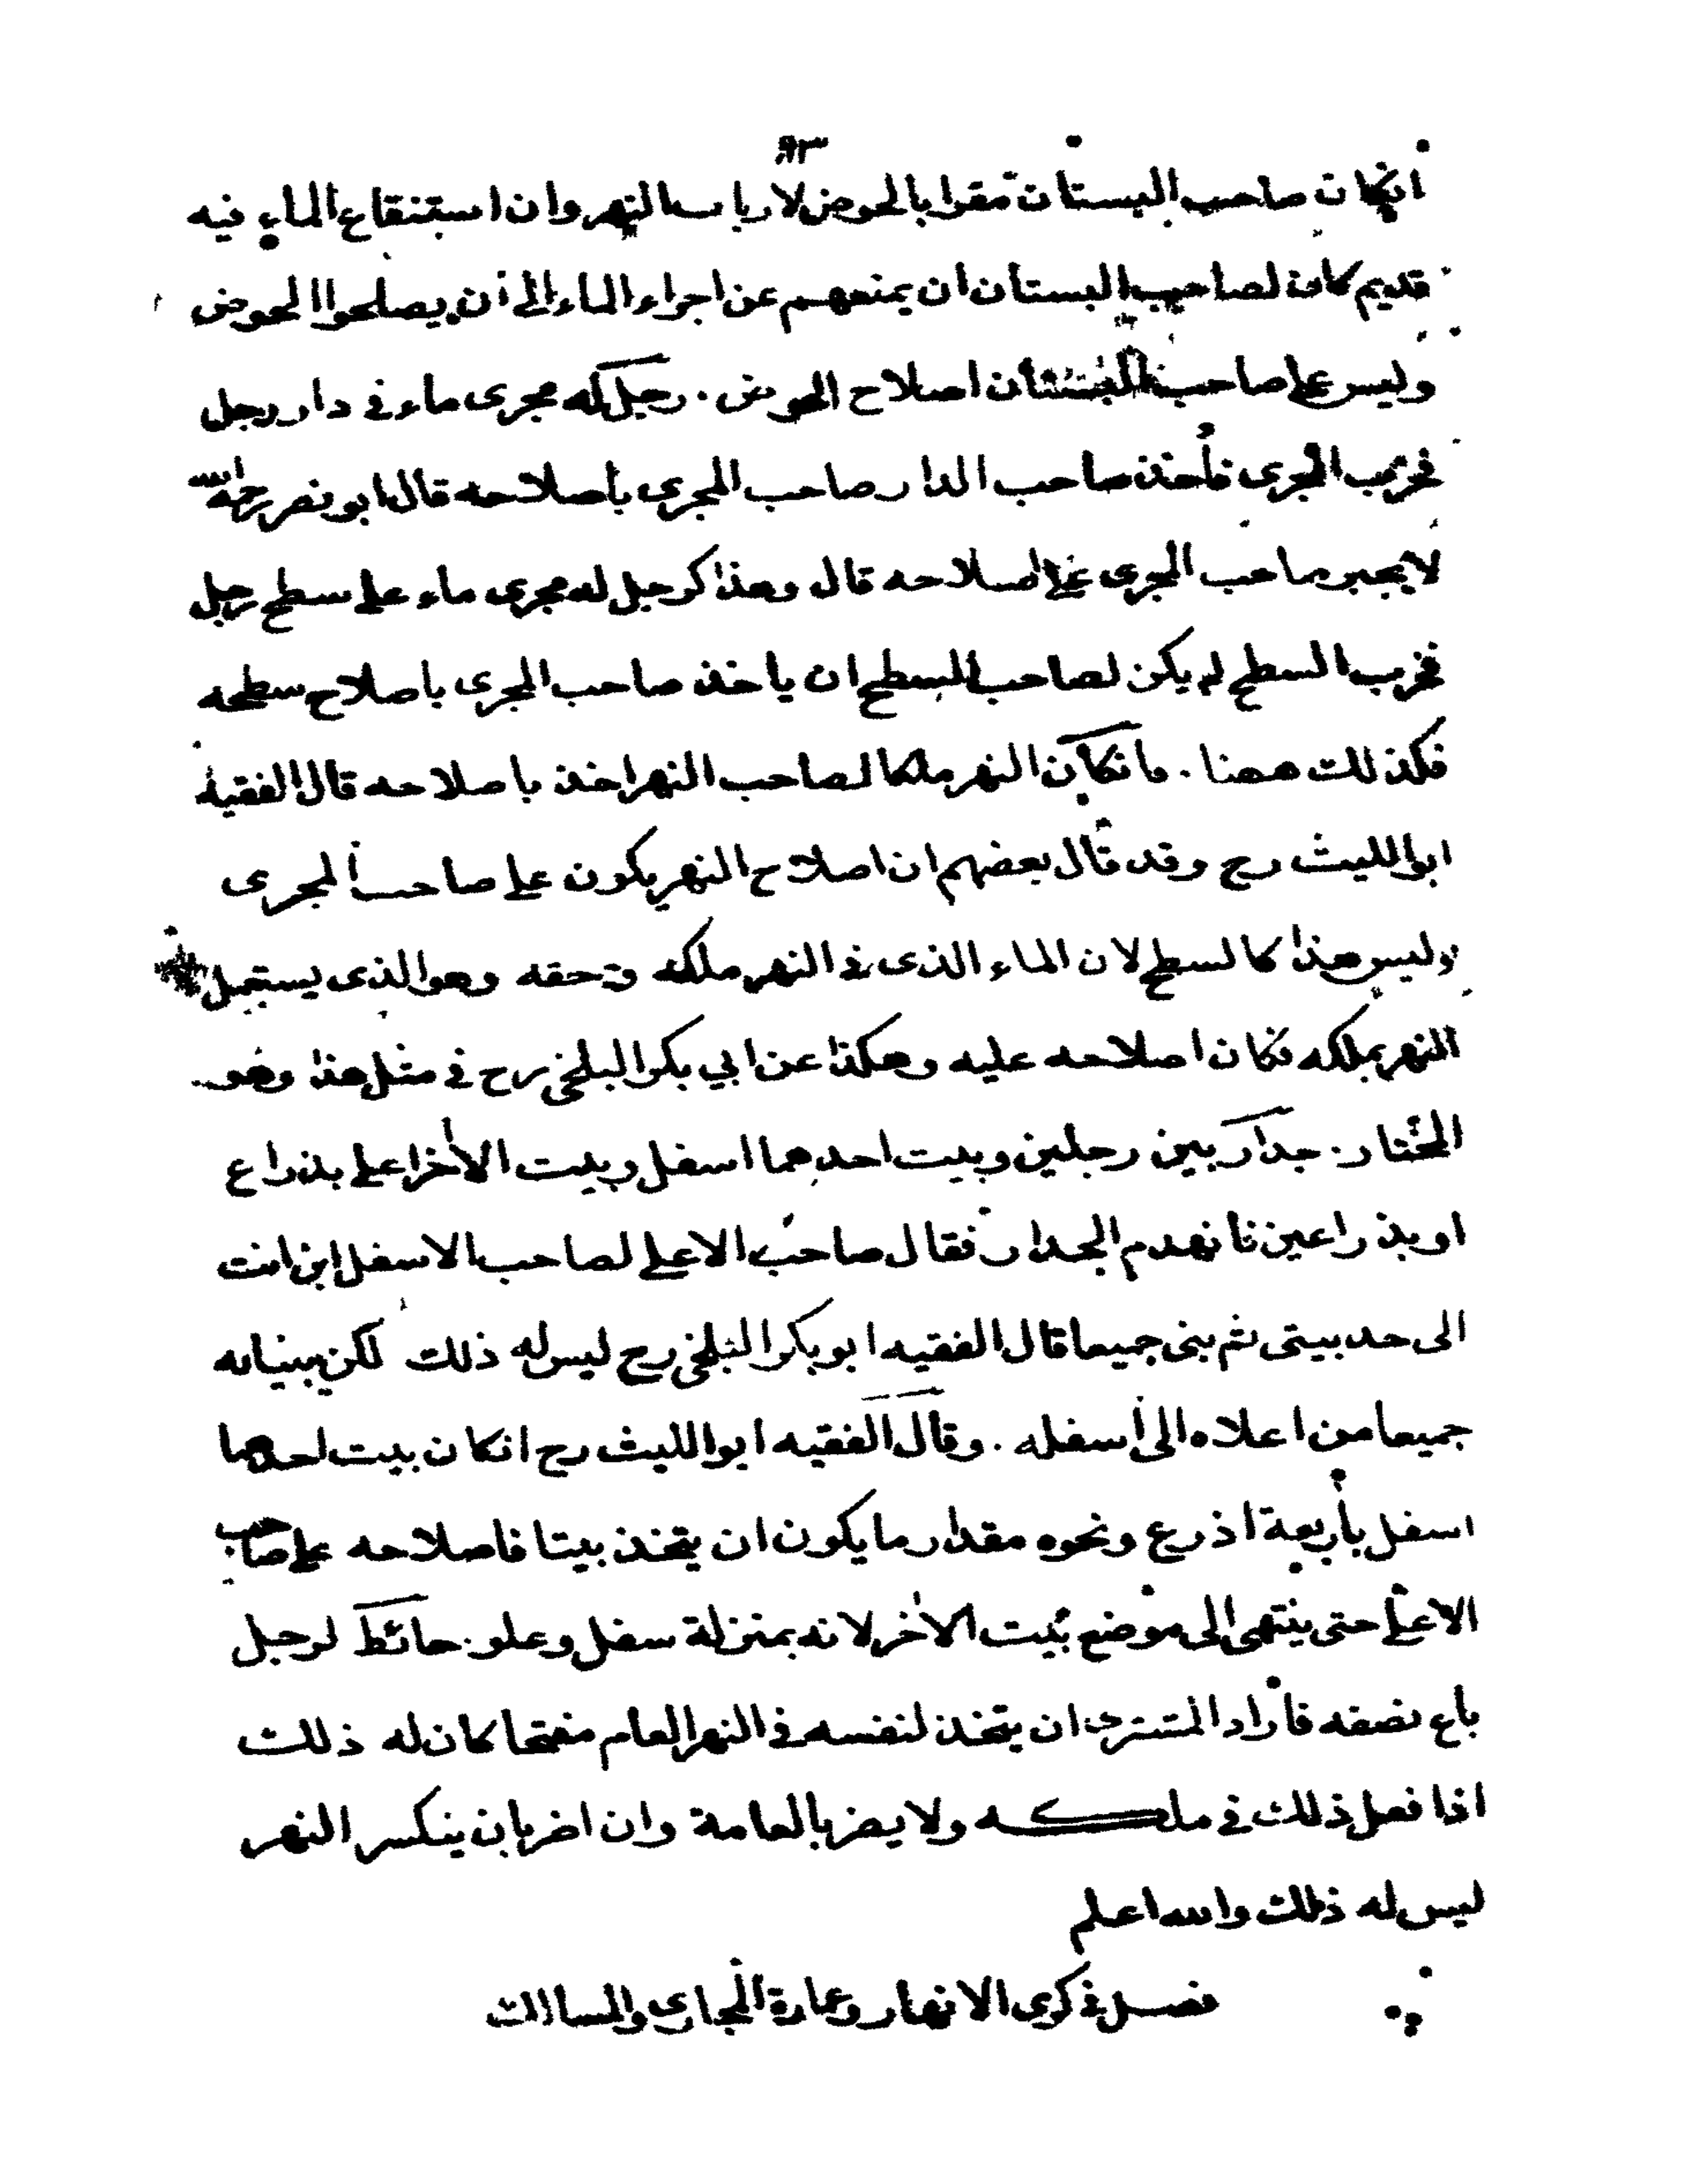 ٩٣
انكان صاحب البستان مقرا بالحوض لارباب النهر وان استنقاع الماء فيه
قديم كان لصاحب البستان ان يمنعهم عن اجراء الماء الى ان يصلحوا الحوض
وليس على صاحب البستان اصلاح الحوض . رجل له مجرى ماء في دار رجل
فخرب المجرى فأخذ صاحب الدار صاحب المجرى بأصلاحه قال ابو نصر رحمه الله
لا يجبر صاحب المجرى على اصلاحه قال وهذا كرجل له مجرى ماء على سطح رجل
فخرب السطح لم يكن لصاحب السطح ان ياخذ صاحب المجرى باصلاح سطحه
فكذلك ههنا . فانكان النهر ملكا لصاحب النهر اخذ باصلاحه قال الفقيه
ابو الليث رح وقد قال بعضهم ان اصلاح النهر يكون على صاحب المجرى
وليس هذا كالسطح لان الماء الذى في النهر ملكه وحقه وهو الذى يستعمل
النهر بملكه فكان اصلاحه عليه وهكذا عن ابي بكر البلخى رح في مثل هذا وهو
المختار . جدار بين رجلين وبيت احدهما اسفل وبيت الاخر اعلى بذراع
او بذراعين فانهدم الجدار فقال صاحب الاعلى لصاحب الاسفل ابن انت
الى حد بيتى ثم بنى جميعا قال الفقيه ابو بكر البلخى رح ليس له ذلك لكن يبنيانه
جميعا من اعلاه الى اسفله . وقال الفقيه ابو الليث رح انكان بيت احدهما
اسفل بأربعة اذرع ونحوه مقدار ما يكون ان يتخذ بيتا فاصلاحه على صاحب
الاعلى حتى ينتهى الى موضع بيت الاخر لانه بمنزلة سفل وعلو . حائط لرجل
باع نصفه فاراد المشترى ان يتخذ لنفسه في النهر العام مفتحا كان له ذلك
اذا فعل ذلك في ملكه ولا يضر بالعامة وان اضر بان ينكسر النهر
ليس له ذلك والله اعلم
فصل في كرى الانهار وعمارة المجارى والمسالك